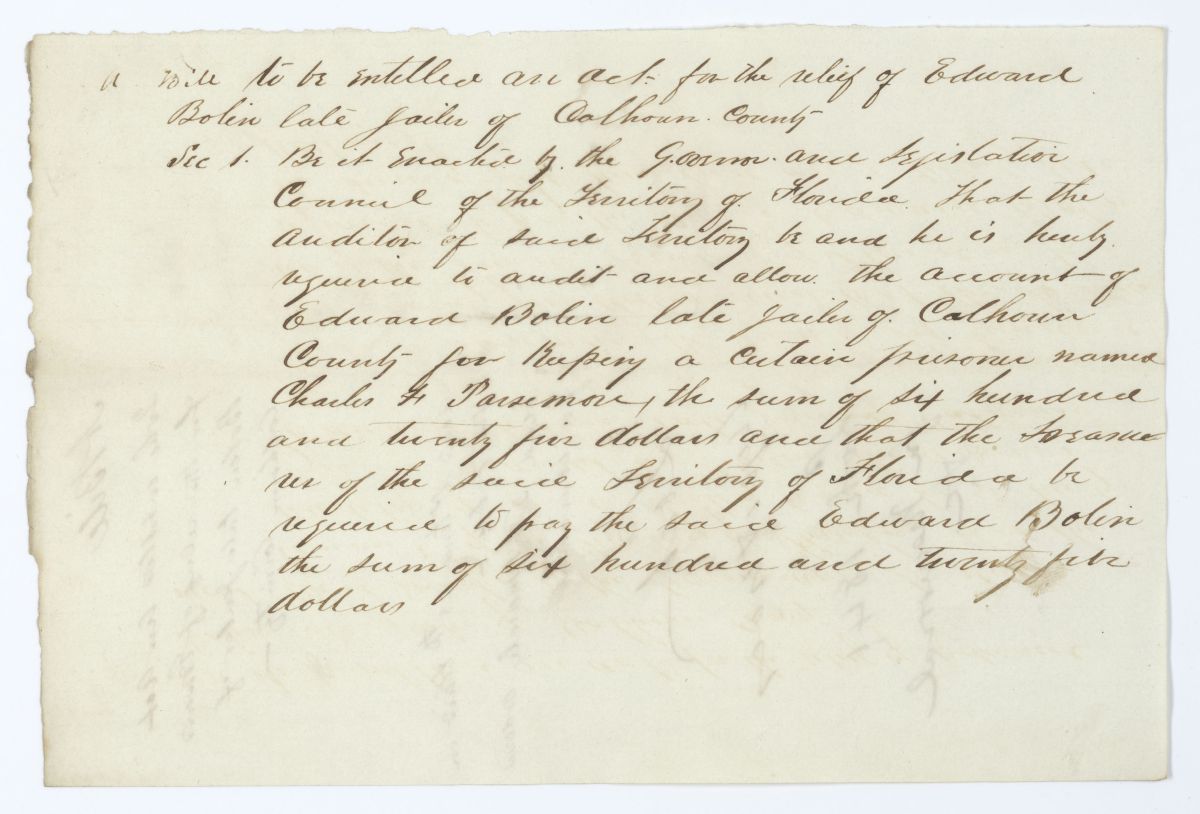 a Bill to be entitled an act for the relief of Edward
Bolin late Jailer of Calhoun County
Sec 1. Be it Enacted by the Governor and Legislative
Council of the Territory of Florida That the
Auditor of said Territory be and he is hereby
required to audit and allow the account of
Edward Bolin late Jailer of Calhoun
County for Keeping a certain prisoner named
Charles F Parsemore, the sum of six hundred
and twenty five dollars and that the Treasu
rer of the said Territory of Florida be
required to pay the said Edward Bolin
the sum of six hundred and twenty five
dollars